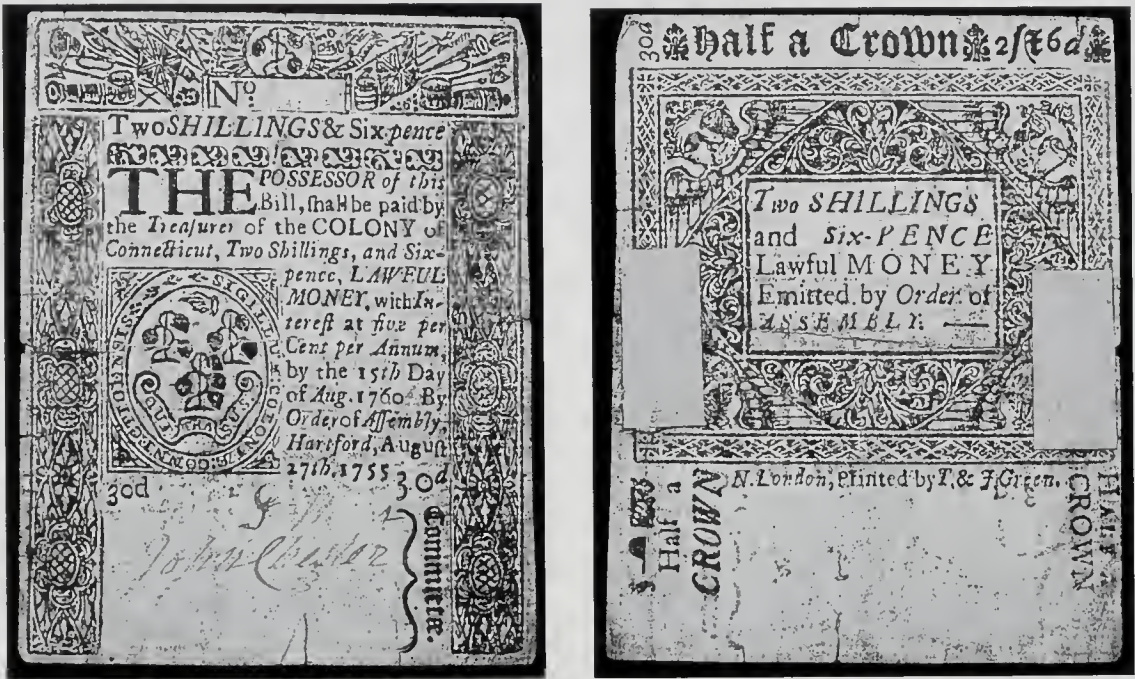 No
Two SHILLINGS & Six-pence
THE POSSESSOR of this
Bill, ſhall be paid by
the Treaſurer of the COLONY of
Connecticut, Two Shillings, and Six-
pence, LAWFUL
MONEY, with In-
tereſt at five per
Cent per Annum,
by the 15th Day
of Aug. 1760. By
Order of Aſſembly,
Hartford, Auguſt
27th. 1755
30d
30d
John Cheſter
Committee.
30d
Half a Crown 2ſ & 6d
Two SHILLINGS
and Six-PENCE
Lawful MONEY
Emitted by Order of
ASSEMBLY.
N. London, Printed by T. & J. Green.
Half a
CROWN
HALF a
CROWN